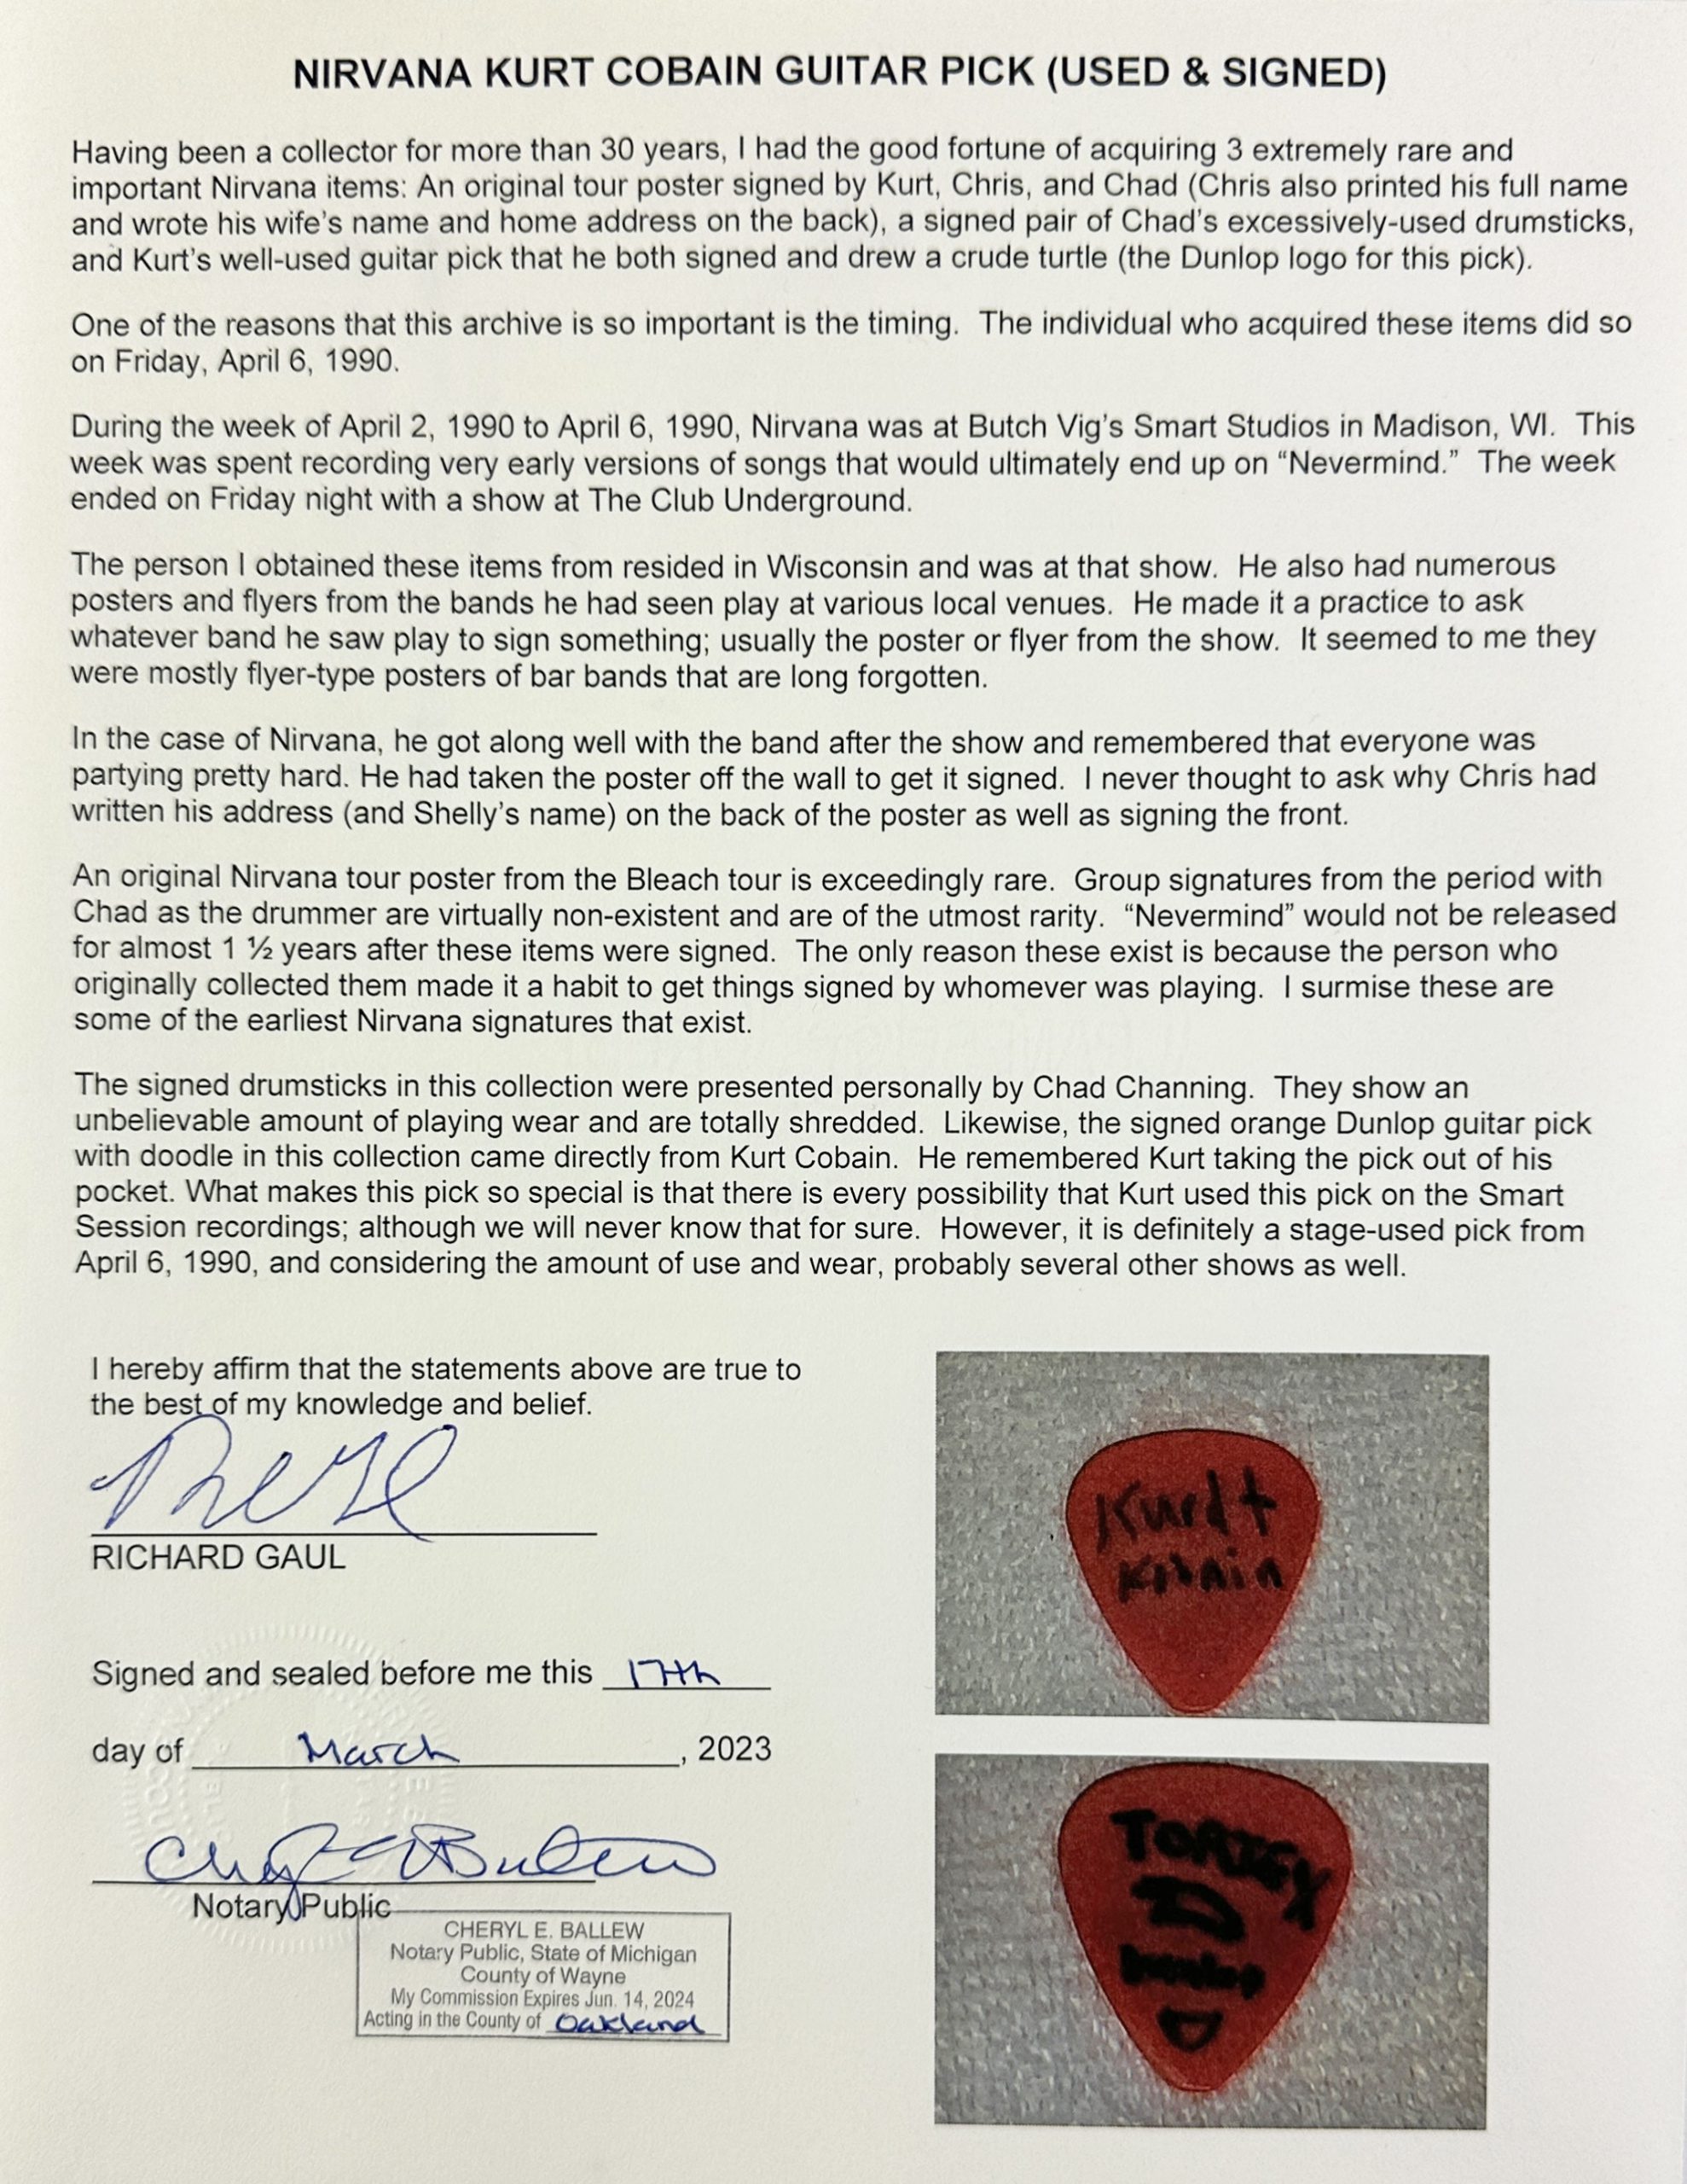 NIRVANA KURT COBAIN GUITAR PICK (USED & SIGNED)
Having been a collector for more than 30 years, I had the good fortune of acquiring 3 extremely rare and
important Nirvana items: An original tour poster signed by Kurt, Chris, and Chad (Chris also printed his full name
and wrote his wife's name and home address on the back), a signed pair of Chad's excessively-used drumsticks,
and Kurt's well-used guitar pick that he both signed and drew a crude turtle (the Dunlop logo for this pick).
One of the reasons that this archive is so important is the timing.  The individual who acquired these items did so
on Friday, April 6, 1990.
During the week of April 2, 1990 to April 6, 1990, Nirvana was at Butch Vig's Smart Studios in Madison, WI.  This
week was spent recording very early versions of songs that would ultimately end up on “Nevermind.”  The week
ended on Friday night with a show at The Club Underground.
The person I obtained these items from resided in Wisconsin and was at that show.  He also had numerous
posters and flyers from the bands he had seen play at various local venues.  He made it a practice to ask
whatever band he saw play to sign something; usually the poster or flyer from the show.  It seemed to me they
were mostly flyer-type posters of bar bands that are long forgotten.
In the case of Nirvana, he got along well with the band after the show and remembered that everyone was
partying pretty hard. He had taken the poster off the wall to get it signed.  I never thought to ask why Chris had
written his address (and Shelly's name) on the back of the poster as well as signing the front.
An original Nirvana tour poster from the Bleach tour is exceedingly rare.  Group signatures from the period with
Chad as the drummer are virtually non-existent and are of the utmost rarity.  “Nevermind” would not be released
for almost 1 ½ years after these items were signed.  The only reason these exist is because the person who
originally collected them made it a habit to get things signed by whomever was playing.  I surmise these are
some of the earliest Nirvana signatures that exist.
The signed drumsticks in this collection were presented personally by Chad Channing.  They show an
unbelievable amount of playing wear and are totally shredded.  Likewise, the signed orange Dunlop guitar pick
with doodle in this collection came directly from Kurt Cobain.  He remembered Kurt taking the pick out of his
pocket. What makes this pick so special is that there is every possibility that Kurt used this pick on the Smart
Session recordings; although we will never know that for sure.  However, it is definitely a stage-used pick from
April 6, 1990, and considering the amount of use and wear, probably several other shows as well.
I hereby affirm that the statements above are true to
the best of my knowledge and belief.
RICHARD GAUL
Signed and sealed before me this 17th
day of March, 2023
Notary Public
CHERYL E. BALLEW
Notary Public, State of Michigan
County of Wayne
My Commission Expires Jun. 14, 2024
Acting in the County of Oakland
Kurdt
Kobain
TORTEX